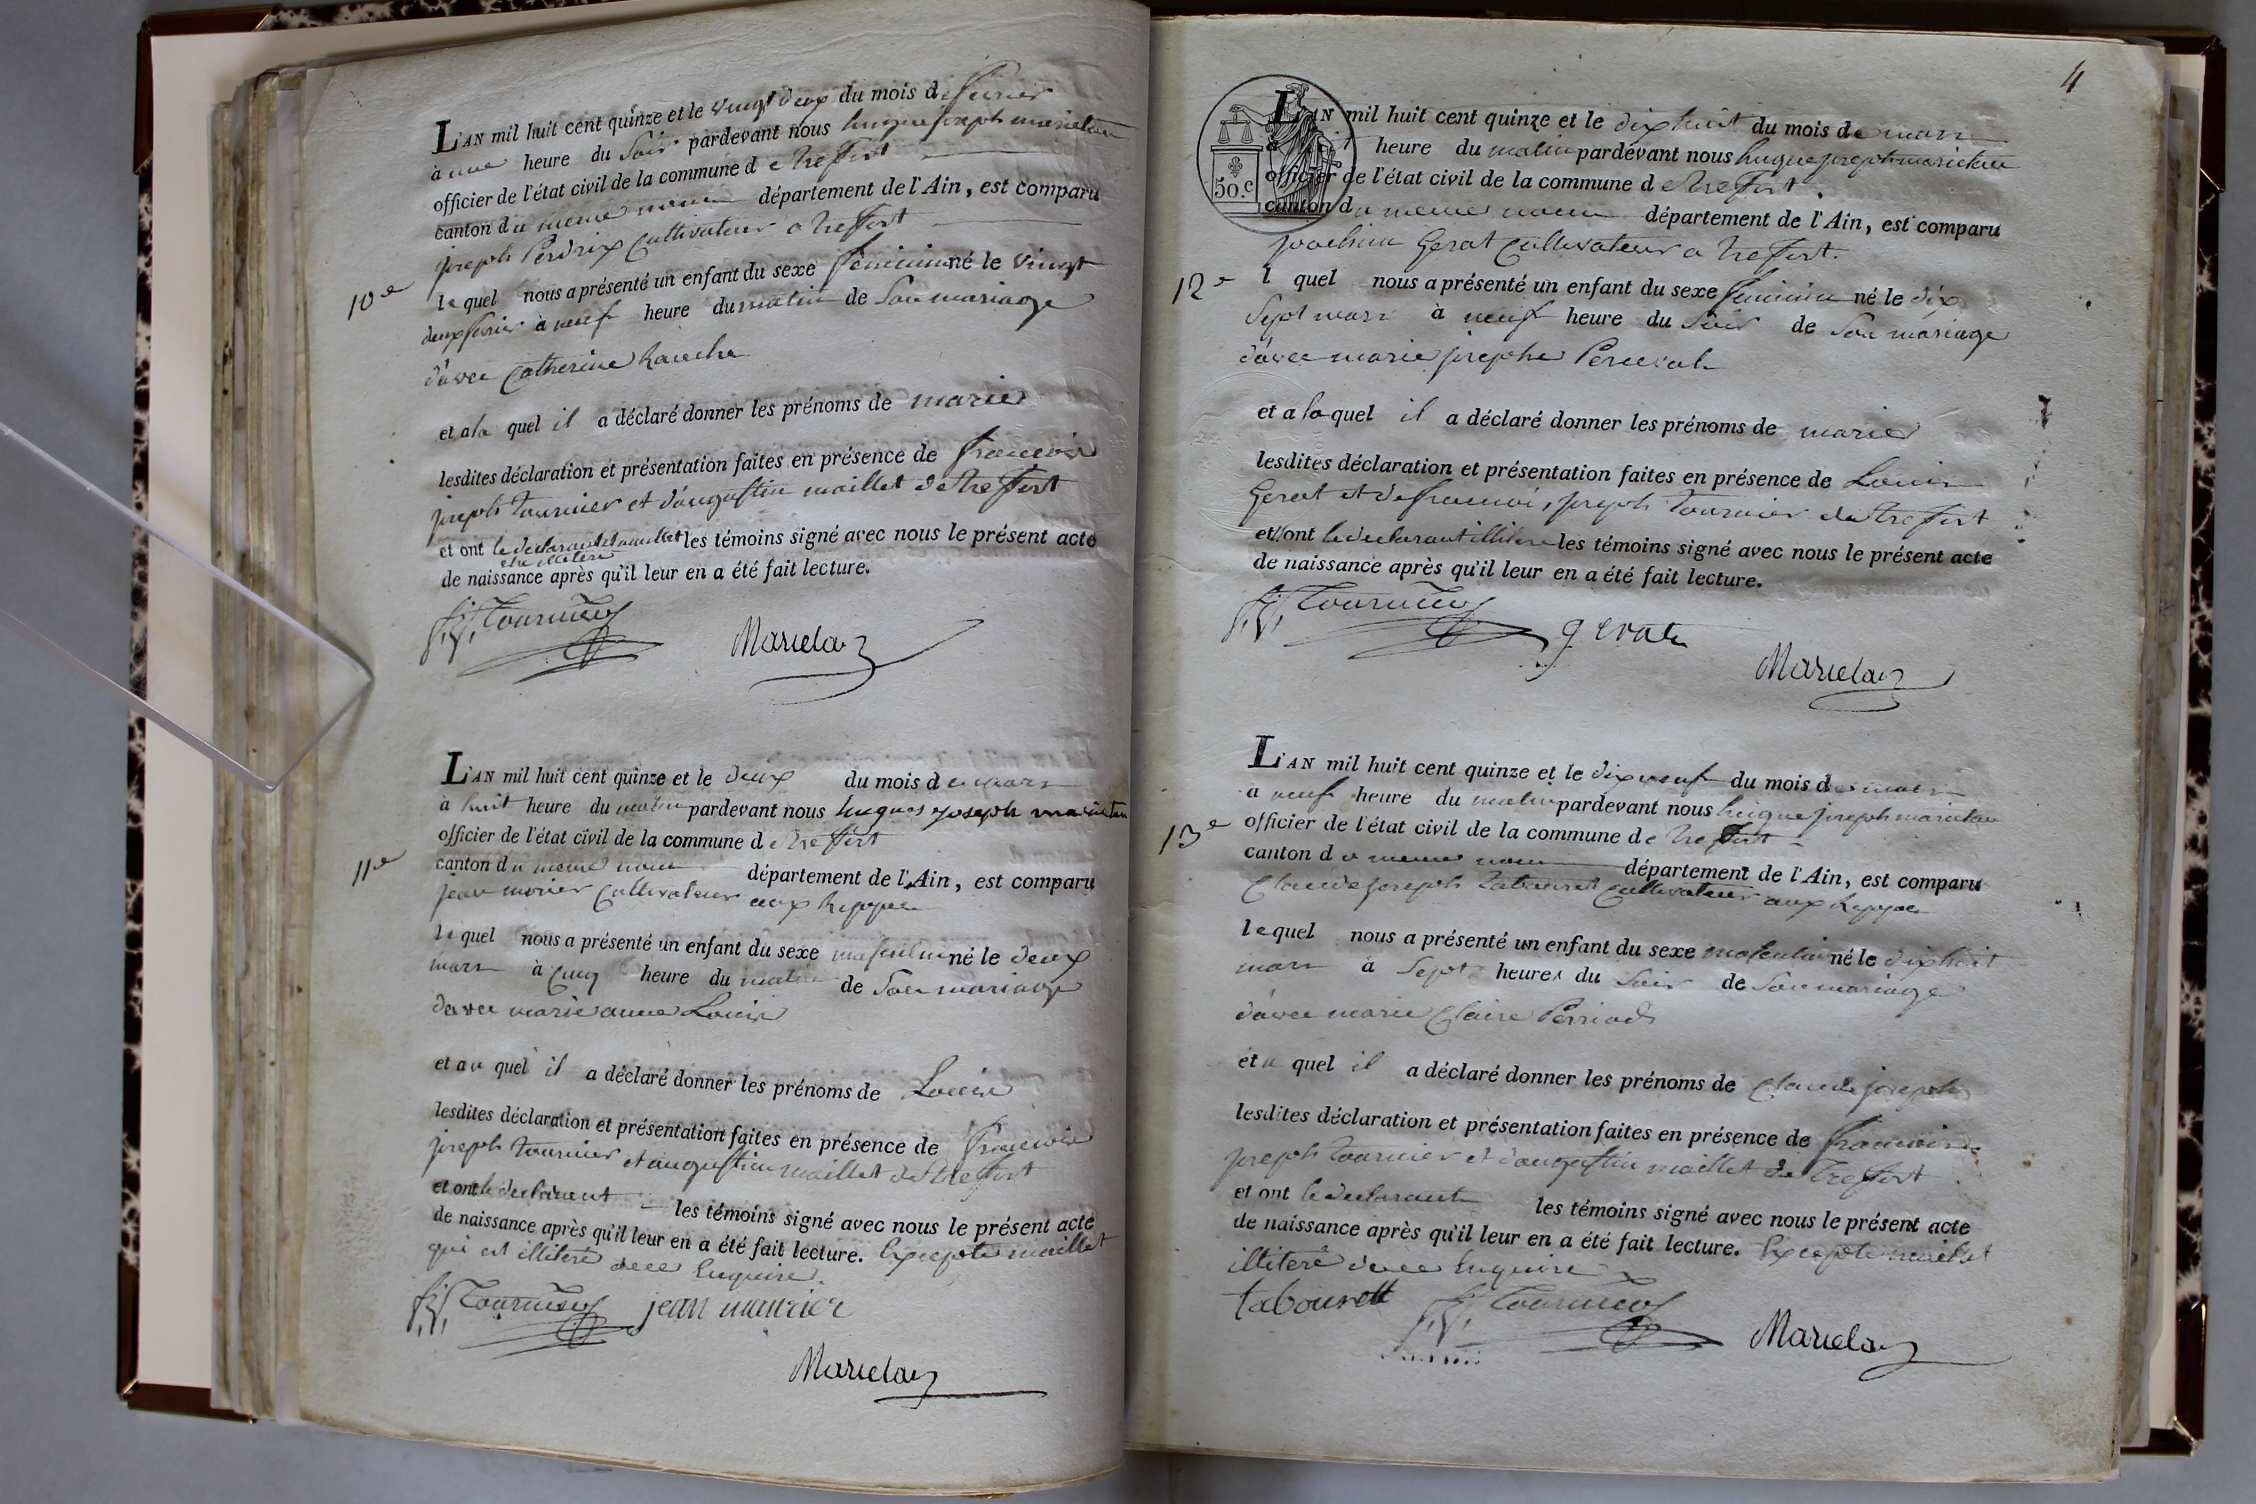 L'AN mil huit cent quinze et le vingt deux du mois de fevrier
à une heure du Soir pardevant nous hugue joseph marielan
officier de l'état civil de la commune de treffort
canton du meme nom département de l'Ain, est comparu
joseph Perdrix Cultivateur a treffort
10e
lequel nous a présenté un enfant du sexe feminin né le vingt
deux fevrier à neuf heure du matin de Son mariage
d'avec Catherine
et a la quel il a déclaré donner les prénoms de marie
lesdites déclaration et présentation faites en présence de francois
joseph tournier et d'augustin maillet de treffort
et ont le declarant et maillet les témoins signé avec nous le présent acte
de naissance après qu'il leur en a été fait lecture.
f. j. Tournier
Marielan
L'AN mil huit cent quinze et le deux du mois de mars
à huit heure du matin pardevant nous hugues joseph marielan
officier de l'état civil de la commune de treffort
11e
canton du meme nom département de l'Ain, est comparu
jean morier Cultivateur aux
lequel nous a présenté un enfant du sexe masculin né le deux
mars à Cinq heure du matin de Son mariage
davec marie anne Louis
et au quel il a déclaré donner les prénoms de Louis
lesdites déclaration et présentation faites en présence de francois
joseph tournier et augustin maillet de treffort
et ont le declarant les témoins signé avec nous le présent acte
de naissance après qu'il leur en a été fait lecture. Excepté maillet
qui est illiteré de ce enquire.
f. j. Tournier jean maurier
Marielan
4
50.c
L'AN mil huit cent quinze et le dix huit du mois de mars
a heure du matin pardevant nous hugue joseph marielan
officier de l'état civil de la commune de treffort
canton du meme nom département de l'Ain, est comparu
joachim Gerat Cultivateur a treffort.
12e
l quel nous a présenté un enfant du sexe feminin né le dix
Sept mars à neuf heure du Soir de Son mariage
d'avec marie josephe
et a la quel il a déclaré donner les prénoms de marie
lesdites déclaration et présentation faites en présence de Louis
Gerat et de francois, joseph tournier de treffort
et ont le declarant illiteré les témoins signé avec nous le présent acte
de naissance après qu'il leur en a été fait lecture.
f. j. Tournier
Marielan
L'AN mil huit cent quinze et le dix neuf du mois de mars
a neuf heure du matin pardevant nous hugue joseph marielan
officier de l'état civil de la commune de treffort
13e
canton du meme nom département de l'Ain, est comparu
Claude joseph tabouret Cultivateur aux
lequel nous a présenté un enfant du sexe masculin né le dix huit
mars à Sept heures du Soir de Son mariage
d'avec marie Claire Perriod
et a quel il a déclaré donner les prénoms de Claude joseph
lesdites déclaration et présentation faites en présence de francois
joseph tournier et d'augustin maillet de treffort
et ont le declarant les témoins signé avec nous le présent acte
de naissance après qu'il leur en a été fait lecture. Excepté maillet
illiteré de ce enquire
tabourett f. j. Tournier
Marielan